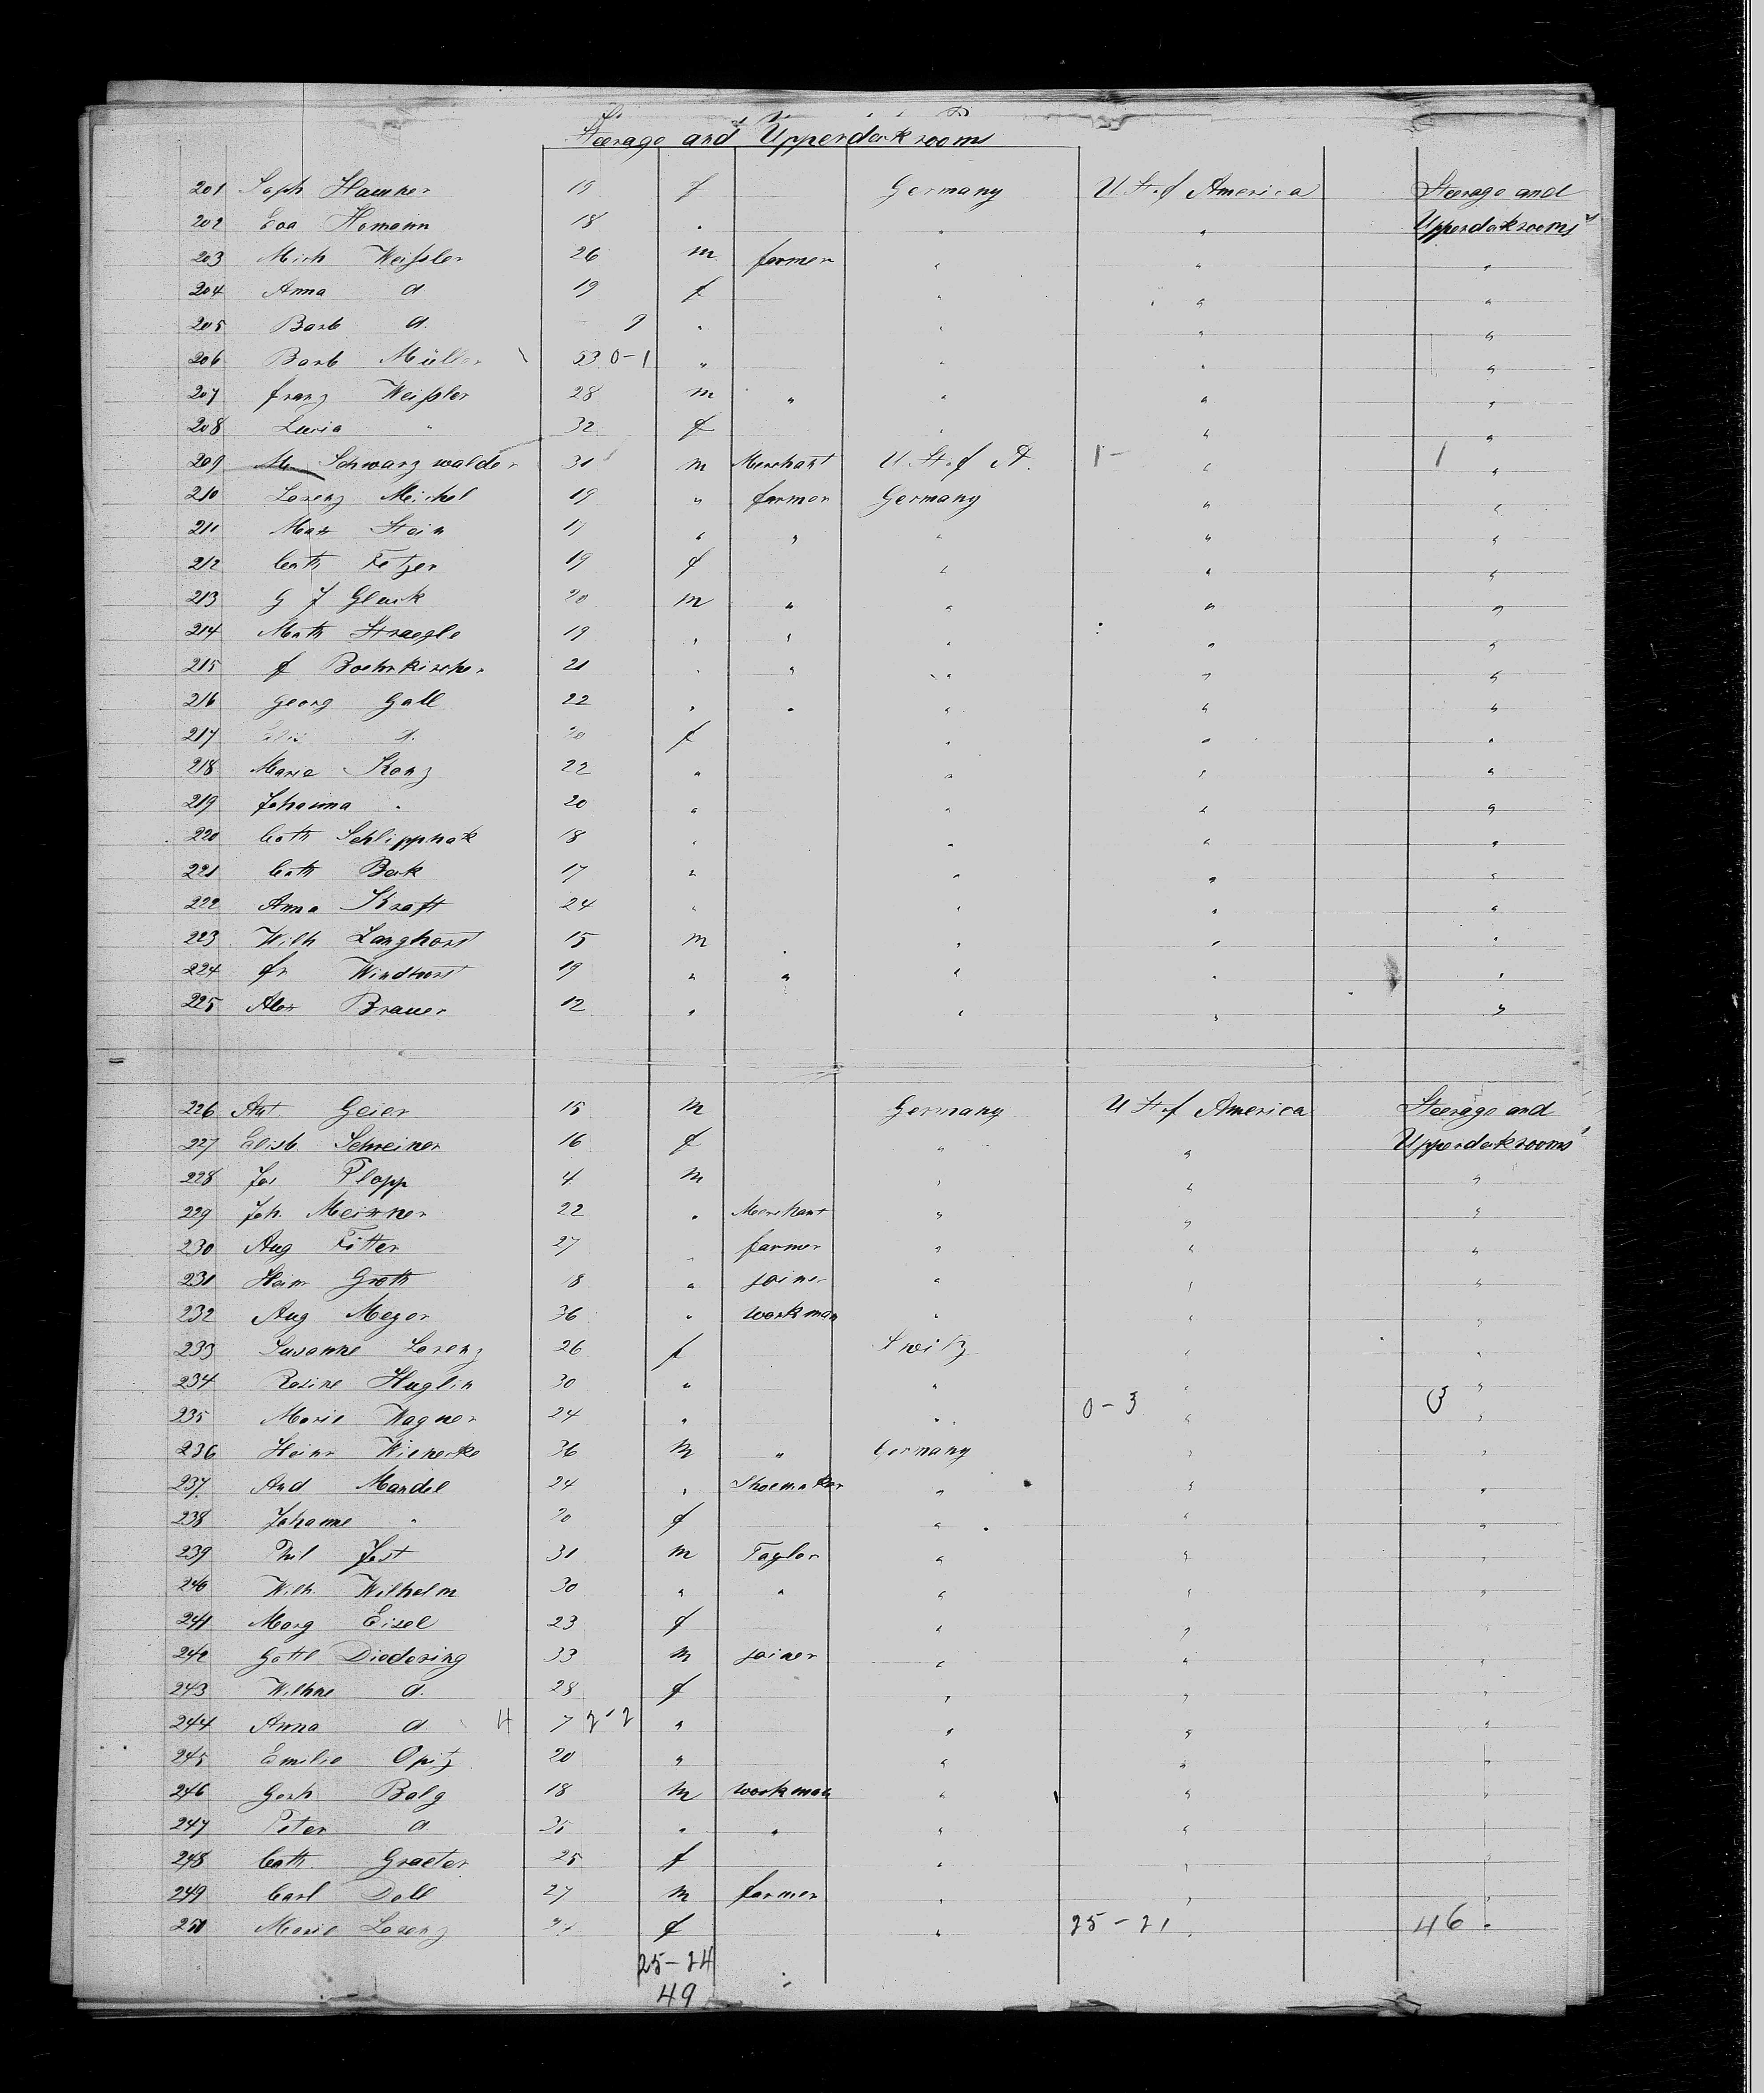 Steerage and Upperdeck rooms
201 Soph Hamner 19 f Germany U. St. of America Steerage and
202 Eva Homann 18 " " " Upperdeckrooms
203 Mich Weissler 26 m farmer " " "
204 Anna d. 19 f " " "
205 Barb d. 9 " " " "
206 Barb Müller 53 0-1 " " " "
207 franz Weissler 28 m " " " "
208 " 32 f " " "
209 Schwarzwalder 31 m Merchant U. St. of A. 1- " 1 "
210 Lorenz Michel 19 " farmer Germany " "
211 Max Stein 17 " " " " "
212 Cath Fetzer 19 f " " "
213 G J Glück 20 m " " " "
214 Math Straegle 19 " " " " "
215 f 21 " " " " "
216 Georg Gall 22 " " " " "
217 d. 20 f " " "
218 Marie Konz 22 " " " "
219 Johanna " 20 " " " "
220 Cath Schlipphak 18 " " " "
221 Cath Beck 17 " " " "
222 Anna Kraft 24 " " " "
223 Wilh Langhorst 15 m " " "
224 fr Windhorst 19 " " " " "
225 Alex Brauer 12 " " " "
226 Ant Geier 15 m Germany U St. of America Steerage and
227 Elisb. Schreiner 16 f " " Upperdeckrooms
228 Jos Plopp 4 m " " "
229 Joh. Meixner 22 " Merchant " " "
230 Aug Fitter 27 " farmer " " "
231 Heinr Groth 18 " joiner " " "
232 Aug Meyer 36 " workman " " "
233 Susanne Lorenz 26 f Switz " "
234 Rosine Huglin 30 " " " "
235 Marie Wagner 24 " " 0-3 " 3 "
236 Heinr Wienecke 36 m " Germany " "
237 And Mandel 24 " Shoemaker " " "
238 Johanne " 20 f " " "
239 Phil Jost 31 m Taylor " " "
240 Wilh. Wilhelm 30 " " " " "
241 Marg Eisel 23 f " " "
242 Gottl Diedering 33 m joiner " " "
243 Wilhne d. 28 f " " "
244 Anna d 4 7 2-2 " " " "
245 Emilie Opitz 20 " " " "
246 Gerh Balg 18 m workman " " "
247 Peter d 35 " " " " "
248 Cath. Graeter 25 f " " "
249 Carl Doll 27 m farmer " " "
Marie Lorenz f " 25-21 " 46 "
25-24
49